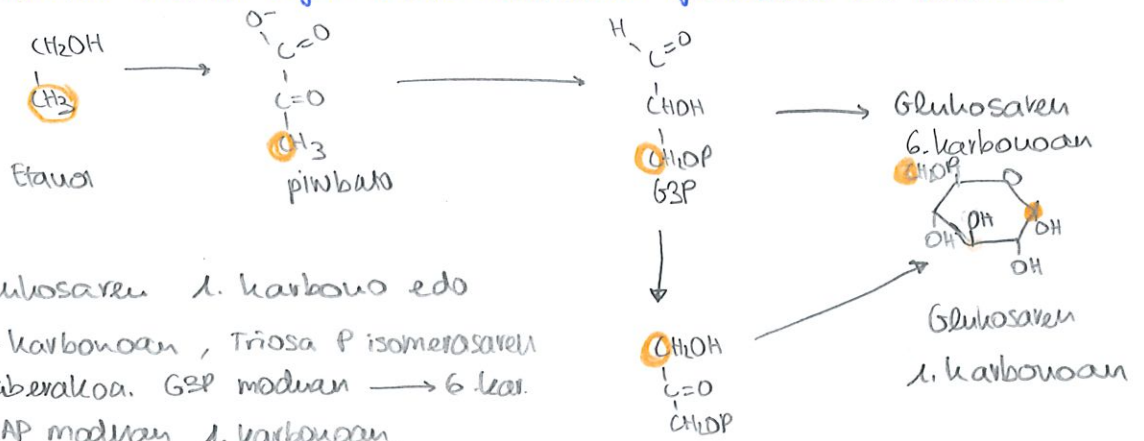 CH2OH
CH3
Etanol
O-
C=O
C=O
CH3
pirubato
H
C=O
CHOH
CH2OP
G3P
Glukosaren
6. karbonoan
CH2OP
O
OH
OH
OH
OH
Glukosaren
1. karbonoan
CH2OH
C=O
CH2OP
ukosaren 1. karbono edo
karbonoan, Triosa P isomerasaren
aberakoa. G3P moduan → 6. kar.
AP moduan 1. karbonoan